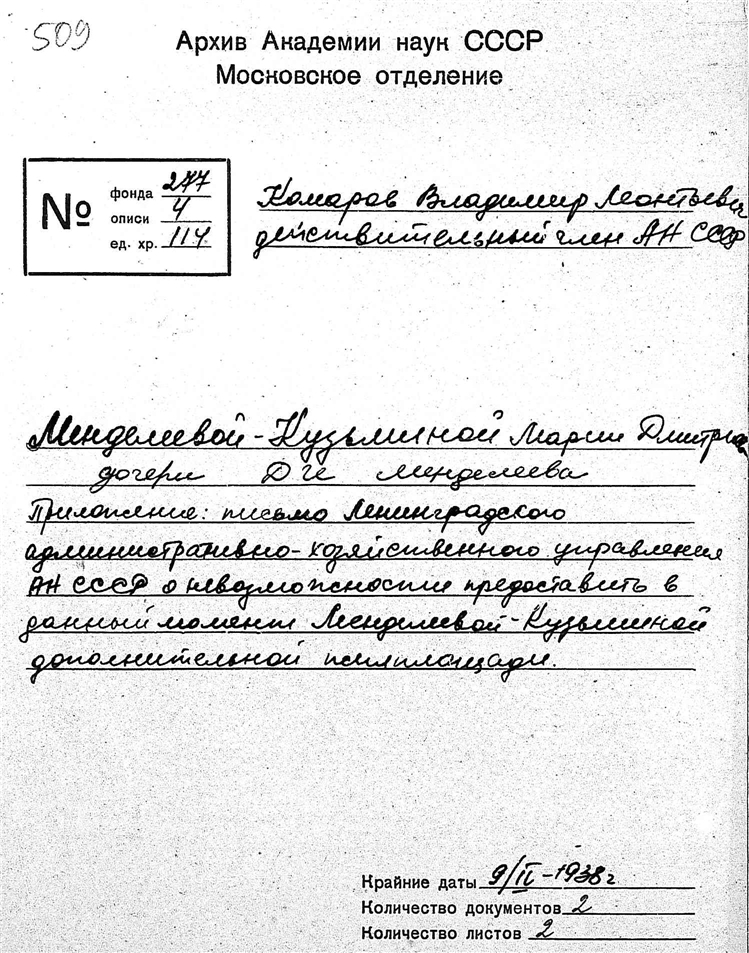 509
Архив Академии наук СССР
Московское отделение
№
фонда 277
описи 4
ед. хр. 114
Комаров Владимир Леонтьевич
действительный член АН СССР
Менделеевой-Кузьминой Марии Дмитр
дочери Д И Менделеева
Приложение: письмо Ленинградского
административно-хозяйственного управления
АН СССР о невозможности предоставить в
данный момент Менделеевой-Кузьминой
дополнительной жилплощади.
Крайние даты 9/II-1938 г
Количество документов 2
Количество листов 2